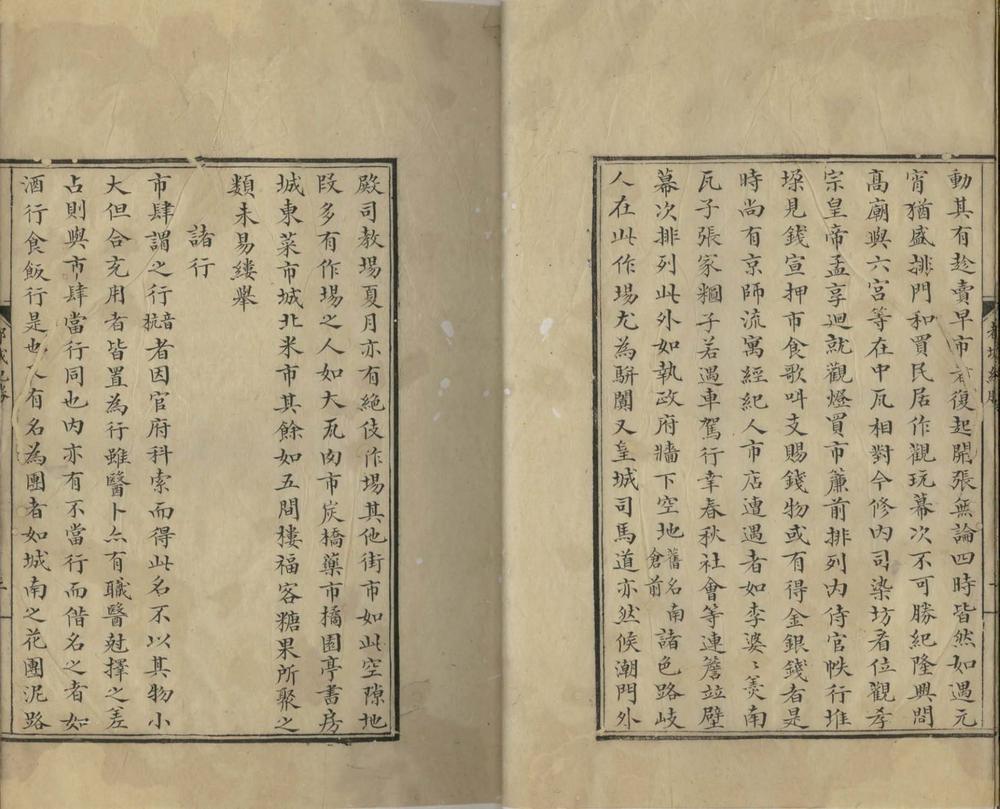 動其有趁賣早市者復起開張無論四時皆然如遇元
宵猶盛排門和買民居作觀玩幕次不可勝紀隆興間
高廟與六宮等在中瓦相對今修內司染坊看位觀孝
宗皇帝孟享迴就觀燈買市簾前排列內侍官帙行堆
垜見錢宣押市食歌叫支賜錢物或有得金銀錢者是
時尚有京師流寓經紀人市店遭遇者如李婆〻羹南
瓦子張家糰子若遇車駕行幸春秋社會等連簷竝壁
幕次排列此外如執政府牆下空地舊名南倉前諸色路歧
人在此作場尤為駢闐又皇城司馬道亦然候潮門外
殿司教場夏月亦有絕伎作場其他街市如此空隙地
段多有作場之人如大瓦肉市炭橋藥市橘園亭書房
城東菜市城北米市其餘如五間樓福客糖果所聚之
類未易縷舉
諸行
市肆謂之行音抗者因官府科索而得此名不以其物小
大但合充用者皆置為行雖醫卜亦有職醫尅擇之差
占則與市肆當行同也內亦有不當行而借名之者如
酒行食飯行是也又有名為團者如城南之花團泥路